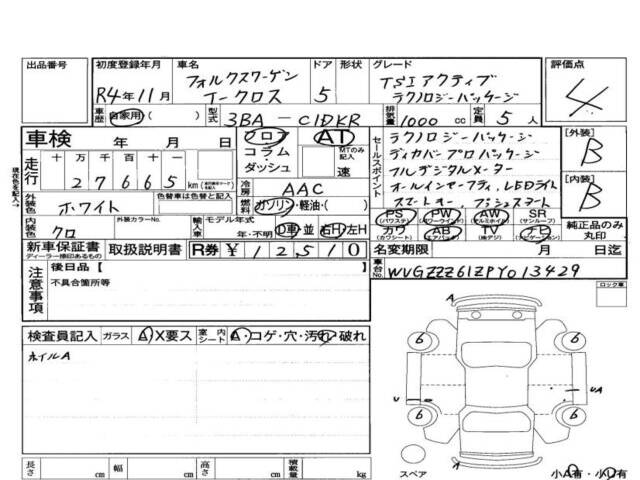 出品番号
初度登録年月
R4年11月
車名
フォルクスワーゲン
T-クロス
ドア
5
形状
グレード
TSI アクティブ
テクノロジーパッケージ
評価点
4
車歴
自家用( )
型式
3BA-C1DKR
排気量
1000 cc
定員
5人
車検 年 月 日
フロア
コラム・
ダッシュ
AT
MTのみ記入
速
走行
十 万 千 百 十 一
27665 km
冷房
AAC
燃料
ガソリン・軽油・( )
セールスポイント
テクノロジーパッケージ
ディカバープロパッケージ
フルデジタルメーター
オールインセーフティ, LEDライト
スマートキー, プッシュスタート
[外装]
B
[内装]
B
外装色
ホワイト
色替車は色替と記入
内装色
クロ
外装カラーNo.
輸入車
モデル年式
年・不明
D車・並
右H・左H
PS
(パワステ)
PW
(パワーウィンド)
AW
(アルミホイル)
SR
(サンルーフ)
カワ
(カワシート)
AB
(エアバック)
TV
(地デジ)
ナビ
(ナビゲーション)
純正品のみ
丸印
新車保証書
ディーラー捺印あるもの
取扱説明書
R券 ¥12,510
名変期限 月 日迄
車台No.
WVGZZZC1ZPY013429
注意事項
後日品【
不具合箇所等
ロック車
検査員記入
ガラス
A・X要ス
室内
シート
A・コゲ・穴・汚れ・破れ
ホイルA
A
6
6
U
UA
6
6
A
スペア
小A有・小U有
長さ cm
幅 cm
高さ cm
積載量 kg